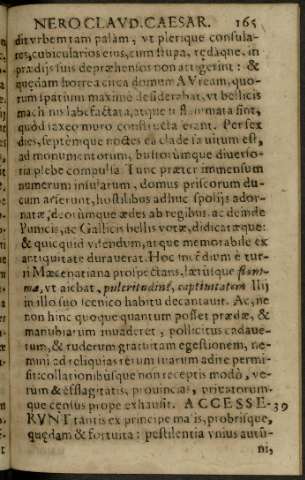 NERO CLAVD. CAESAR. 165
dit vrbem tam palàm, vt plerique consula-
res, cubicularios eius, cum stupa, tędaque, in
prædijs suis depræhensos non attigerint: &
quędam horrea circa domum AVream, quo-
rum spatium maximè desiderabat, vt bellicis
machinis labefactata, atque inflammata sint,
quòd saxeo muro constructa erant. Per sex
dies, septémque noctes ea clade sæuitum est,
ad monumentorum, bustorúmque diuerso-
ria plebe compulsa. Tunc præter immensum
numerum insularum, domus priscorum du-
cum arserunt, hostilibus adhuc spolijs ador-
natæ, deorúmque ædes ab regibus, ac deinde
Punicis, ac Gallicis bellis votæ, dedicatæque:
& quicquid visendum, atque memorabile ex
antiquitate durauerat. Hoc incẽdium è tur-
ri Mæcenatiana prospectans, lætúsque flam-
mæ, vt aiebat, pulcritudine, captiuitatem Ilij
in illo suo scenico habitu decantauit. Ac, ne
non hinc quoque quantum posset prædæ, &
manubiarum inuaderet, pollicitus cadaue-
rum, & ruderum gratuitam egestionem, ne-
mini ad reliquias rerum suarum adire permi-
sit: collationibúsque non receptis modò, ve-
rùm & efflagitatis, prouincias, priuatorúm-
que census prope exhausit. ACCESSE- 39
RVNT tantis ex principe malis, probrisque,
quędam & fortuita: pestilentia vnius autũ-
ni,